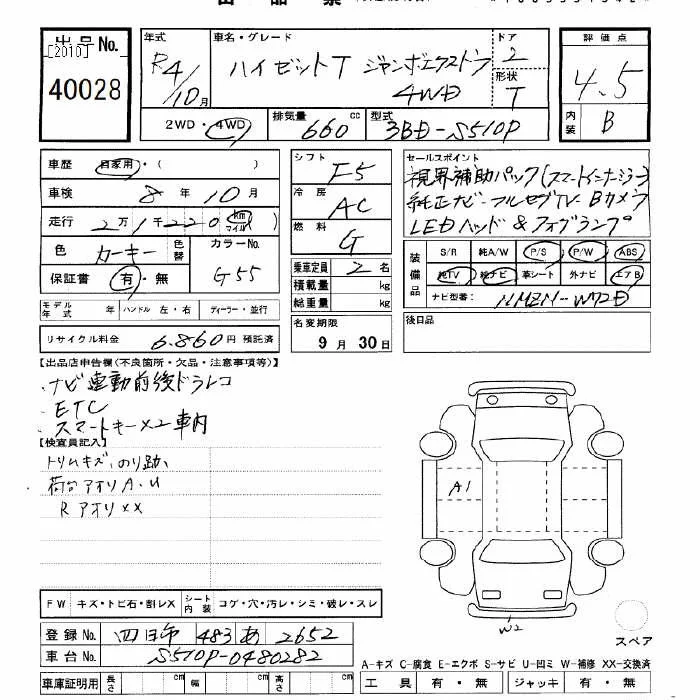 出品票
出品No. [2010]
40028
年式 R4/10月
車名・グレード ハイゼットT ジャンボエクストラ 4WD
ドア 2
形状 T
評価点 4.5
内装 B
2WD・4WD
排気量 660 cc
型式 3BD-S510P
車歴 自家用・( )
車検 8年10月
走行 2万1千220 km マイル ( )
色 カーキー 色替
カラーNo. G55
保証書 有・無
モデル年式 年
ハンドル 左・右
ディーラー・並行
リサイクル料金 6.860円 預託済
シフト F5
冷房 AC
燃料 G
乗車定員 2名
積載量 kg
総重量 kg
名変期限
9月30日
セールスポイント
視界補助パック(スマートインナーミラー)
純正ナビ フルセグTV Bカメラ
LEDヘッド&フォグランプ
装備品
S/R 純A/W P/S P/W ABS
純TV 純ナビ 革シート 外ナビ エアB
ナビ型番: NMZN-W72D
後日品
【出品店申告欄(不良箇所・欠品・注意事項等)】
・ナビ連動前後ドラレコ
・ETC
・スマートキー×2 車内
【検査員記入】
トリムキズ、のり跡、
荷台アオリA、U
RアオリXX
A1
W2
スペア
FW キズ・トビ石・割レX
シート内装 コゲ・穴・汚レ・シミ・破レ・スレ
登録No. 四日市 483 あ 2652
車台No. S510P-0480282
車庫証明用 長さ cm 幅 cm 高さ cm
A-キズ C-腐食 E-エクボ S-サビ U-凹ミ W-補修 XX-交換済
工具 有・無 ジャッキ 有・無